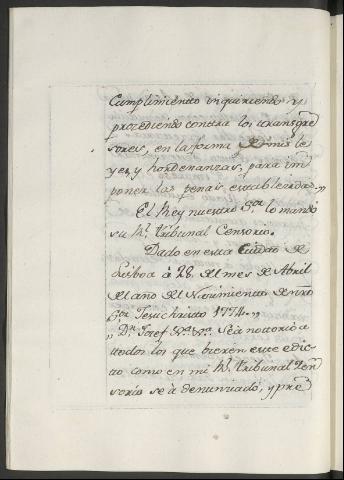 Cumplimiento inquiriendo, y
prozediendo contra los transgre
sores, en la forma de mis le
yes, y hordenanzas, para im
poner las penas establezidas„
El Rey nuestro Sor. lo mandó
su Rl. tribunal Censorio.
Dado en esta Ciudad de
Lisboa à 28 del mes de Abril
del año del Nazimiento de nro
Sor Jesuchristo 1774.„
„Dn. Josef &a. &a. Sea notorio a
todos los que bieren este edic
to como en mi Rl. tribunal Zen
sorio se à denunziado, y pre